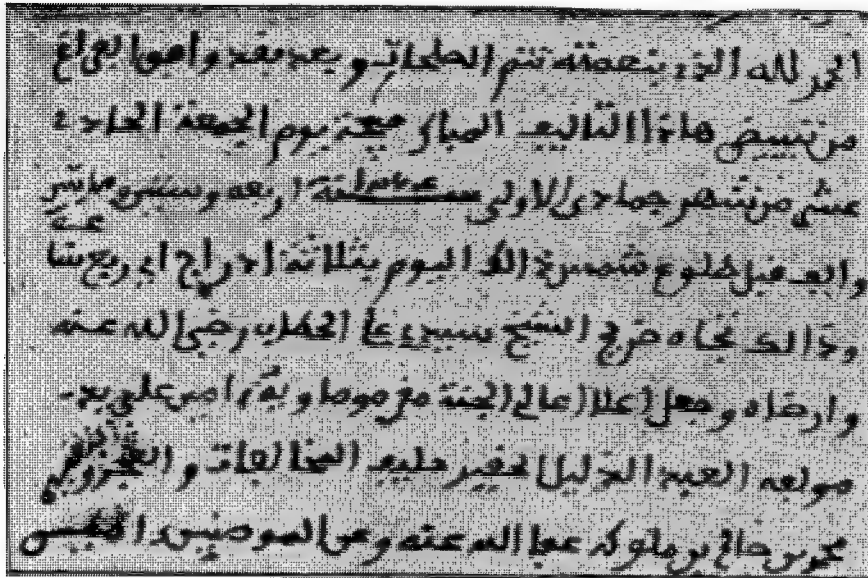 الحمد لله الذي بنعمته تتم الصلحات وبعد بقد وابق الفراغ
من تبييض هاذا التاليف المبارك صبيحة يوم الجمعة الحادي
عشر من شهر جمادى الاولى سنة اربعة وستين مايتين
والف قبل طلوع شمس ذالك اليوم بثلاثة ادراج اي ربع ساعة
وذالك تجاه ضريح الشيخ سيدي علي الحطاب رضي الله عنه
وارضاه وجعل اعلا اعالي الجنة ماواه امين على يد
مولفه العبد الذليل الحقير حليف المخالفات والعجز والتقصير
محمد بن صالح بن ملوكه عفا الله عنه وعن المومنين